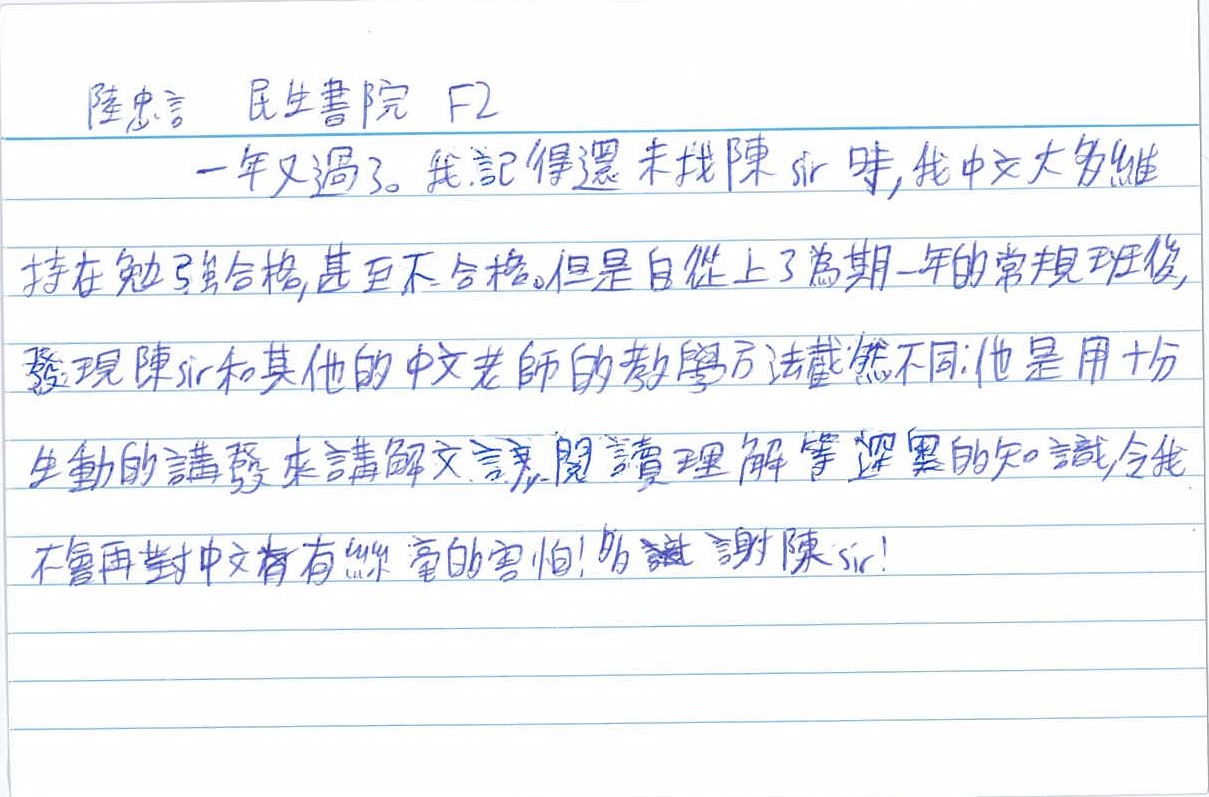 陸忠言 民生書院 F2
一年又過了。我記得還未找陳sir時,我中文大多維
持在勉強合格,甚至不合格。但是自從上了為期一年的常規班後,
發現陳sir和其他的中文老師的教學方法截然不同:他是用十分
生動的講發來講解文言,閱讀理解等深奧的知識,令我
不會再對中文有絲毫的害怕!多謝陳sir!